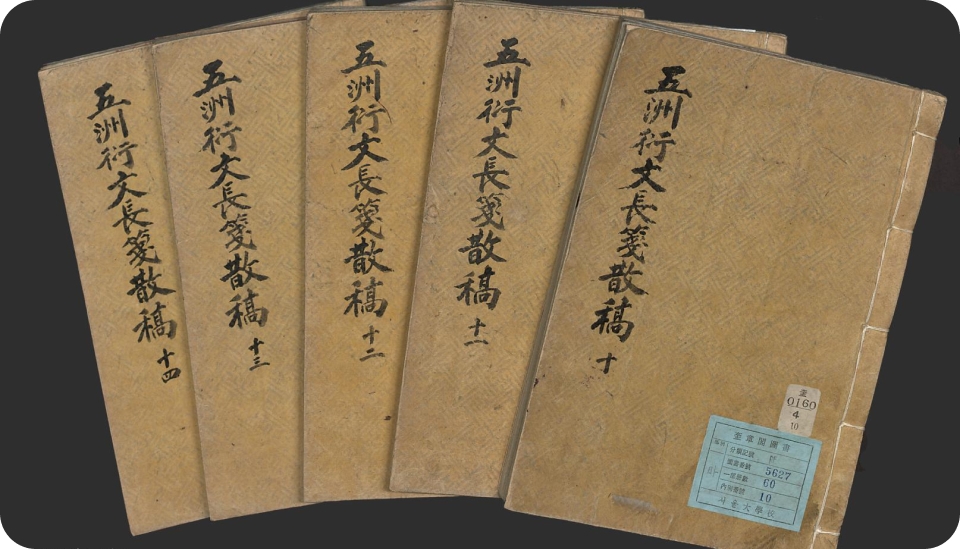 五洲衍文長箋散稿 十四
五洲衍文長箋散稿 十三
五洲衍文長箋散稿 十二
五洲衍文長箋散稿 十一
五洲衍文長箋散稿 十
奎
0160
4
10
奎章閣圖書
分類記號
圖書番號 5627
一部冊數 60
內別番號 10
서울大學校